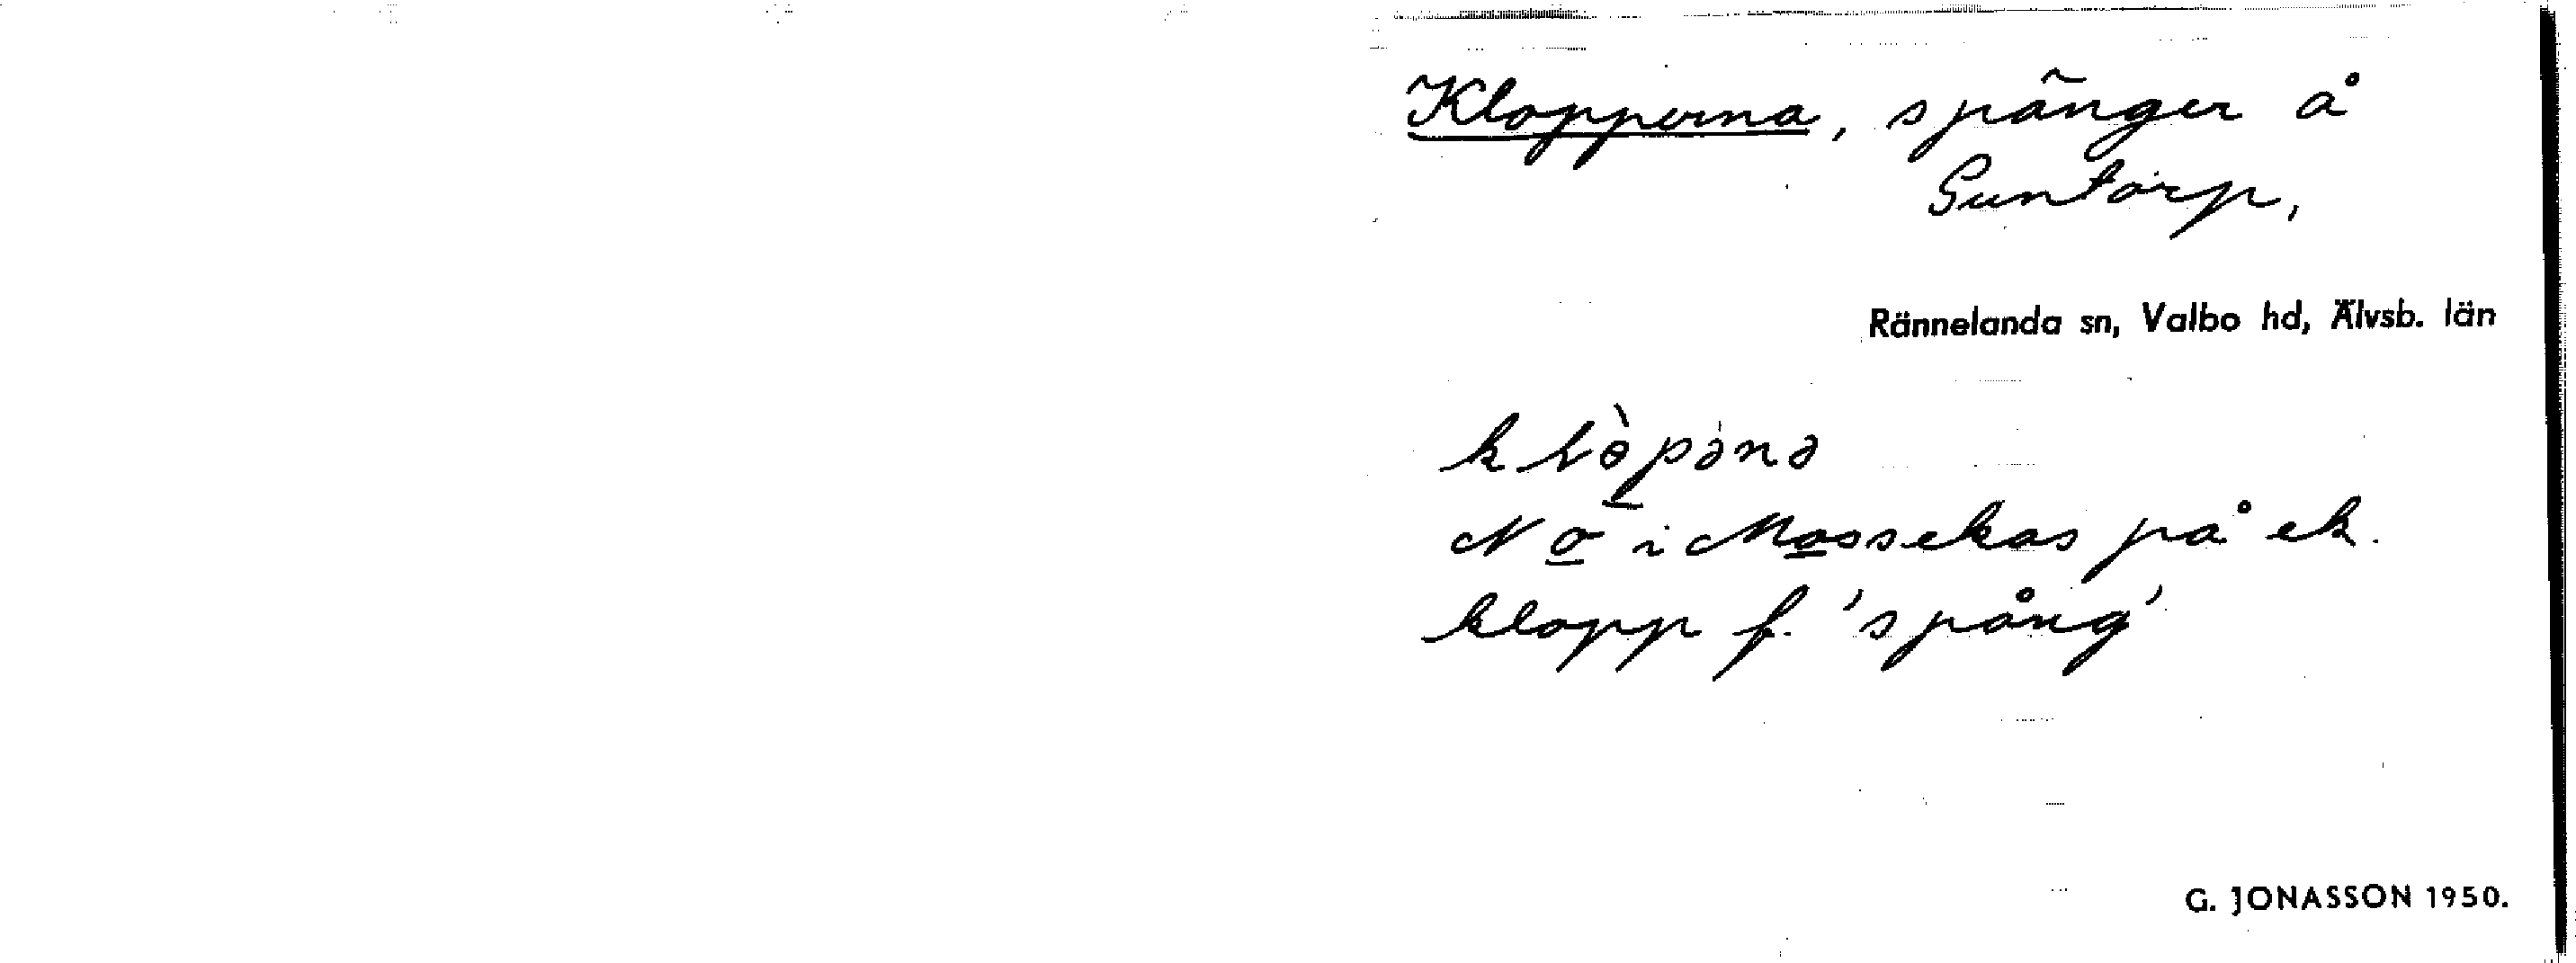 Klopperna, spänger å
Guntorp,
Rännelanda sn, Valbo hd, Älvsb. län
N o i Mossekas på ek.
klopp f. 'spång'
G. JONASSON 1950.